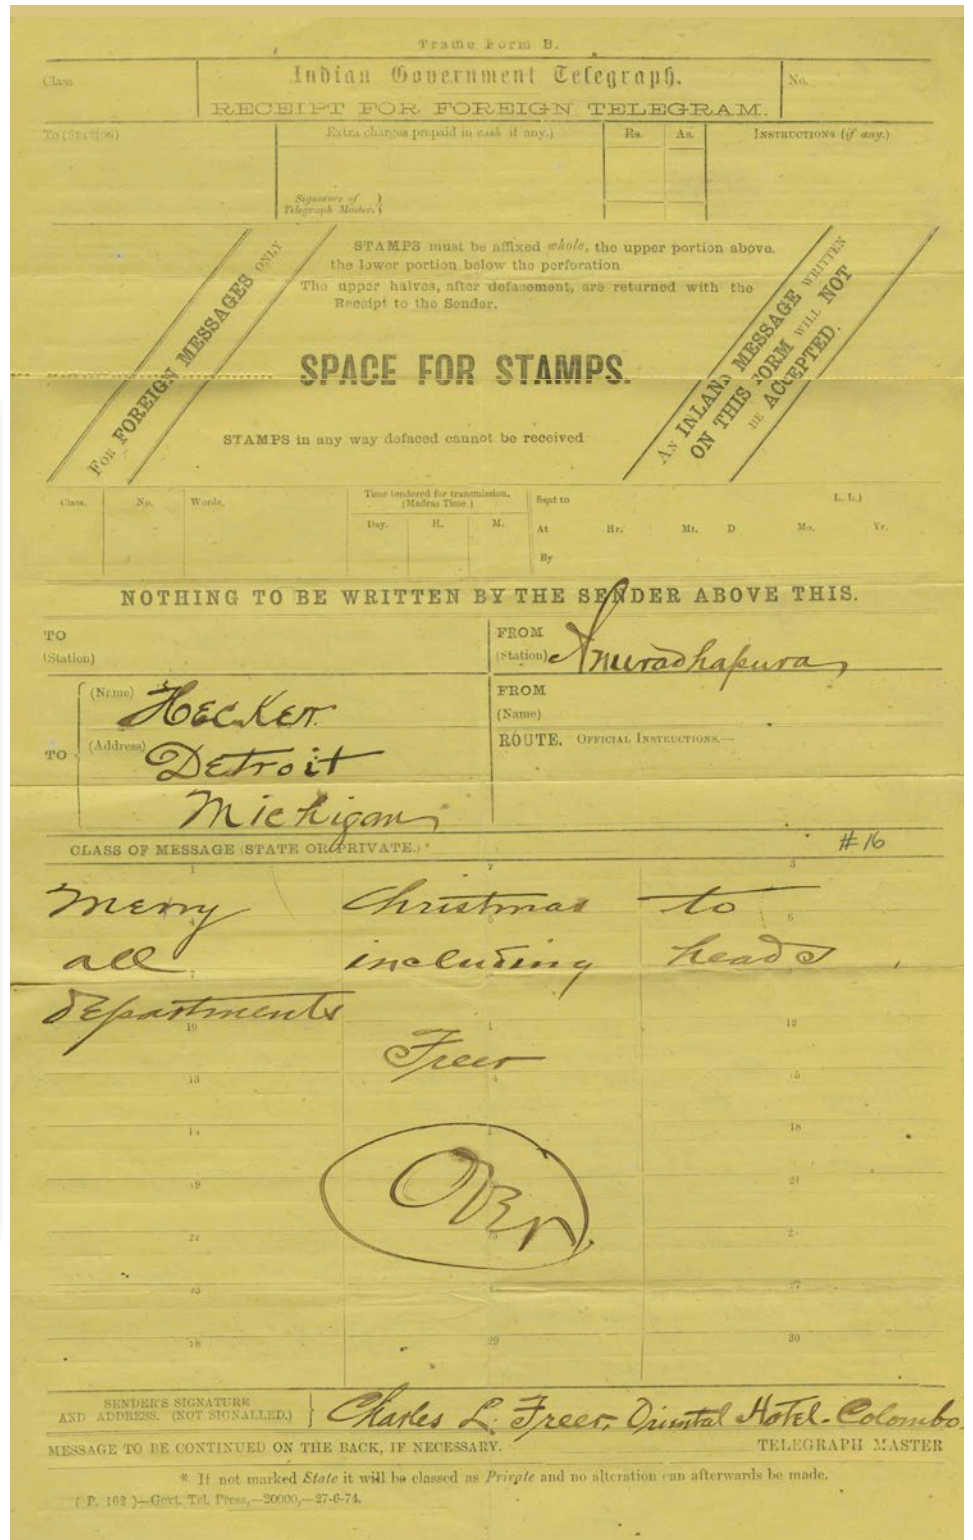 Traffic Form B.
Class
Indian Government Telegraph.
No.
RECEIPT FOR FOREIGN TELEGRAM.
To (Station)
Extra charges prepaid in cash if any.)
Rs.
As.
Instructions (if any.)
Signature of
Telegraph Master.
STAMPS must be affixed whole, the upper portion above,
the lower portion below the perforation
The upper halves, after defacement, are returned with the
Receipt to the Sender.
For FOREIGN MESSAGES ONLY
SPACE FOR STAMPS.
AN INLAND MESSAGE WRITTEN
ON THIS FORM WILL NOT
BE ACCEPTED.
STAMPS in any way defaced cannot be received
Class.
No.
Words.
Time tendered for transmission.
(Madras Time.)
Day.
H.
M.
Sent to
L. L.)
At
Hr.
Mt.
D
Mo.
Yr.
By
NOTHING TO BE WRITTEN BY THE SENDER ABOVE THIS.
TO
(Station)
FROM
(Station) Anuradhapura
TO
(Name) Hecker
(Address) Detroit
Michigan
FROM
(Name)
ROUTE. Official Instructions.—
CLASS OF MESSAGE (STATE OR PRIVATE.) *
#16
1 2 3
Merry Christmas to
4 5 6
all including heads
7
departments
10 1 12
Freer
13 4 15
14 18
Over
19 21
22 23 2
25 27
28 29 30
SENDER'S SIGNATURE
AND ADDRESS. (NOT SIGNALLED.)
Charles L. Freer. Oriental Hotel. Colombo.
MESSAGE TO BE CONTINUED ON THE BACK, IF NECESSARY.
TELEGRAPH MASTER
* If not marked State it will be classed as Private and no alteration can afterwards be made.
( P. 162 )—Govt. Tel. Press,—20000,—27-6-74.